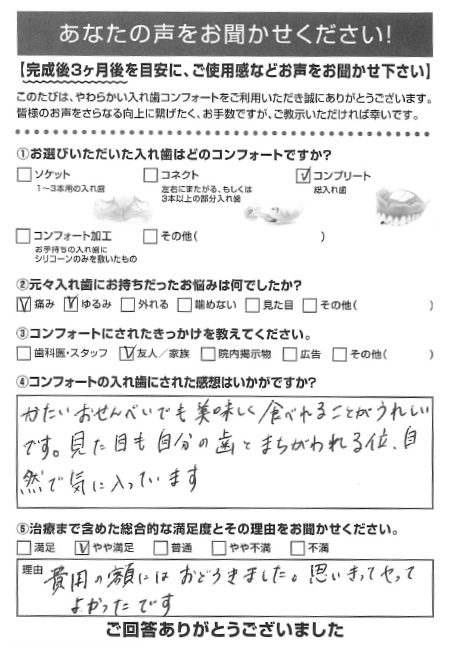 あなたの声をお聞かせください!
【完成後3ヶ月後を目安に、ご使用感などお声をお聞かせ下さい】
このたびは、やわらかい入れ歯コンフォートをご利用いただき誠にありがとうございます。
皆様のお声をさらなる向上に繋げたく、お手数ですが、ご教示いただければ幸いです。
①お選びいただいた入れ歯はどのコンフォートですか?
□ソケット □コネクト ☑コンプリート
1〜3本用の入れ歯 左右にまたがる、もしくは 総入れ歯
3本以上の部分入れ歯
□コンフォート加工 □その他( )
お手持ちの入れ歯に
シリコーンのみを敷いたもの
②元々入れ歯にお持ちだったお悩みは何でしたか?
☑痛み ☑ゆるみ □外れる □噛めない □見た目 □その他( )
③コンフォートにされたきっかけを教えてください。
□歯科医・スタッフ ☑友人/家族 □院内掲示物 □広告 □その他( )
④コンフォートの入れ歯にされた感想はいかがですか?
かたいおせんべいでも美味しく食べれることがうれしい
です。見た目も自分の歯とまちがわれる位、自
然で気に入っています
⑤治療まで含めた総合的な満足度とその理由をお聞かせください。
□満足 ☑やや満足 □普通 □やや不満 □不満
理由 費用の額にはおどろきました。思いきってやって
よかったです
ご回答ありがとうございました